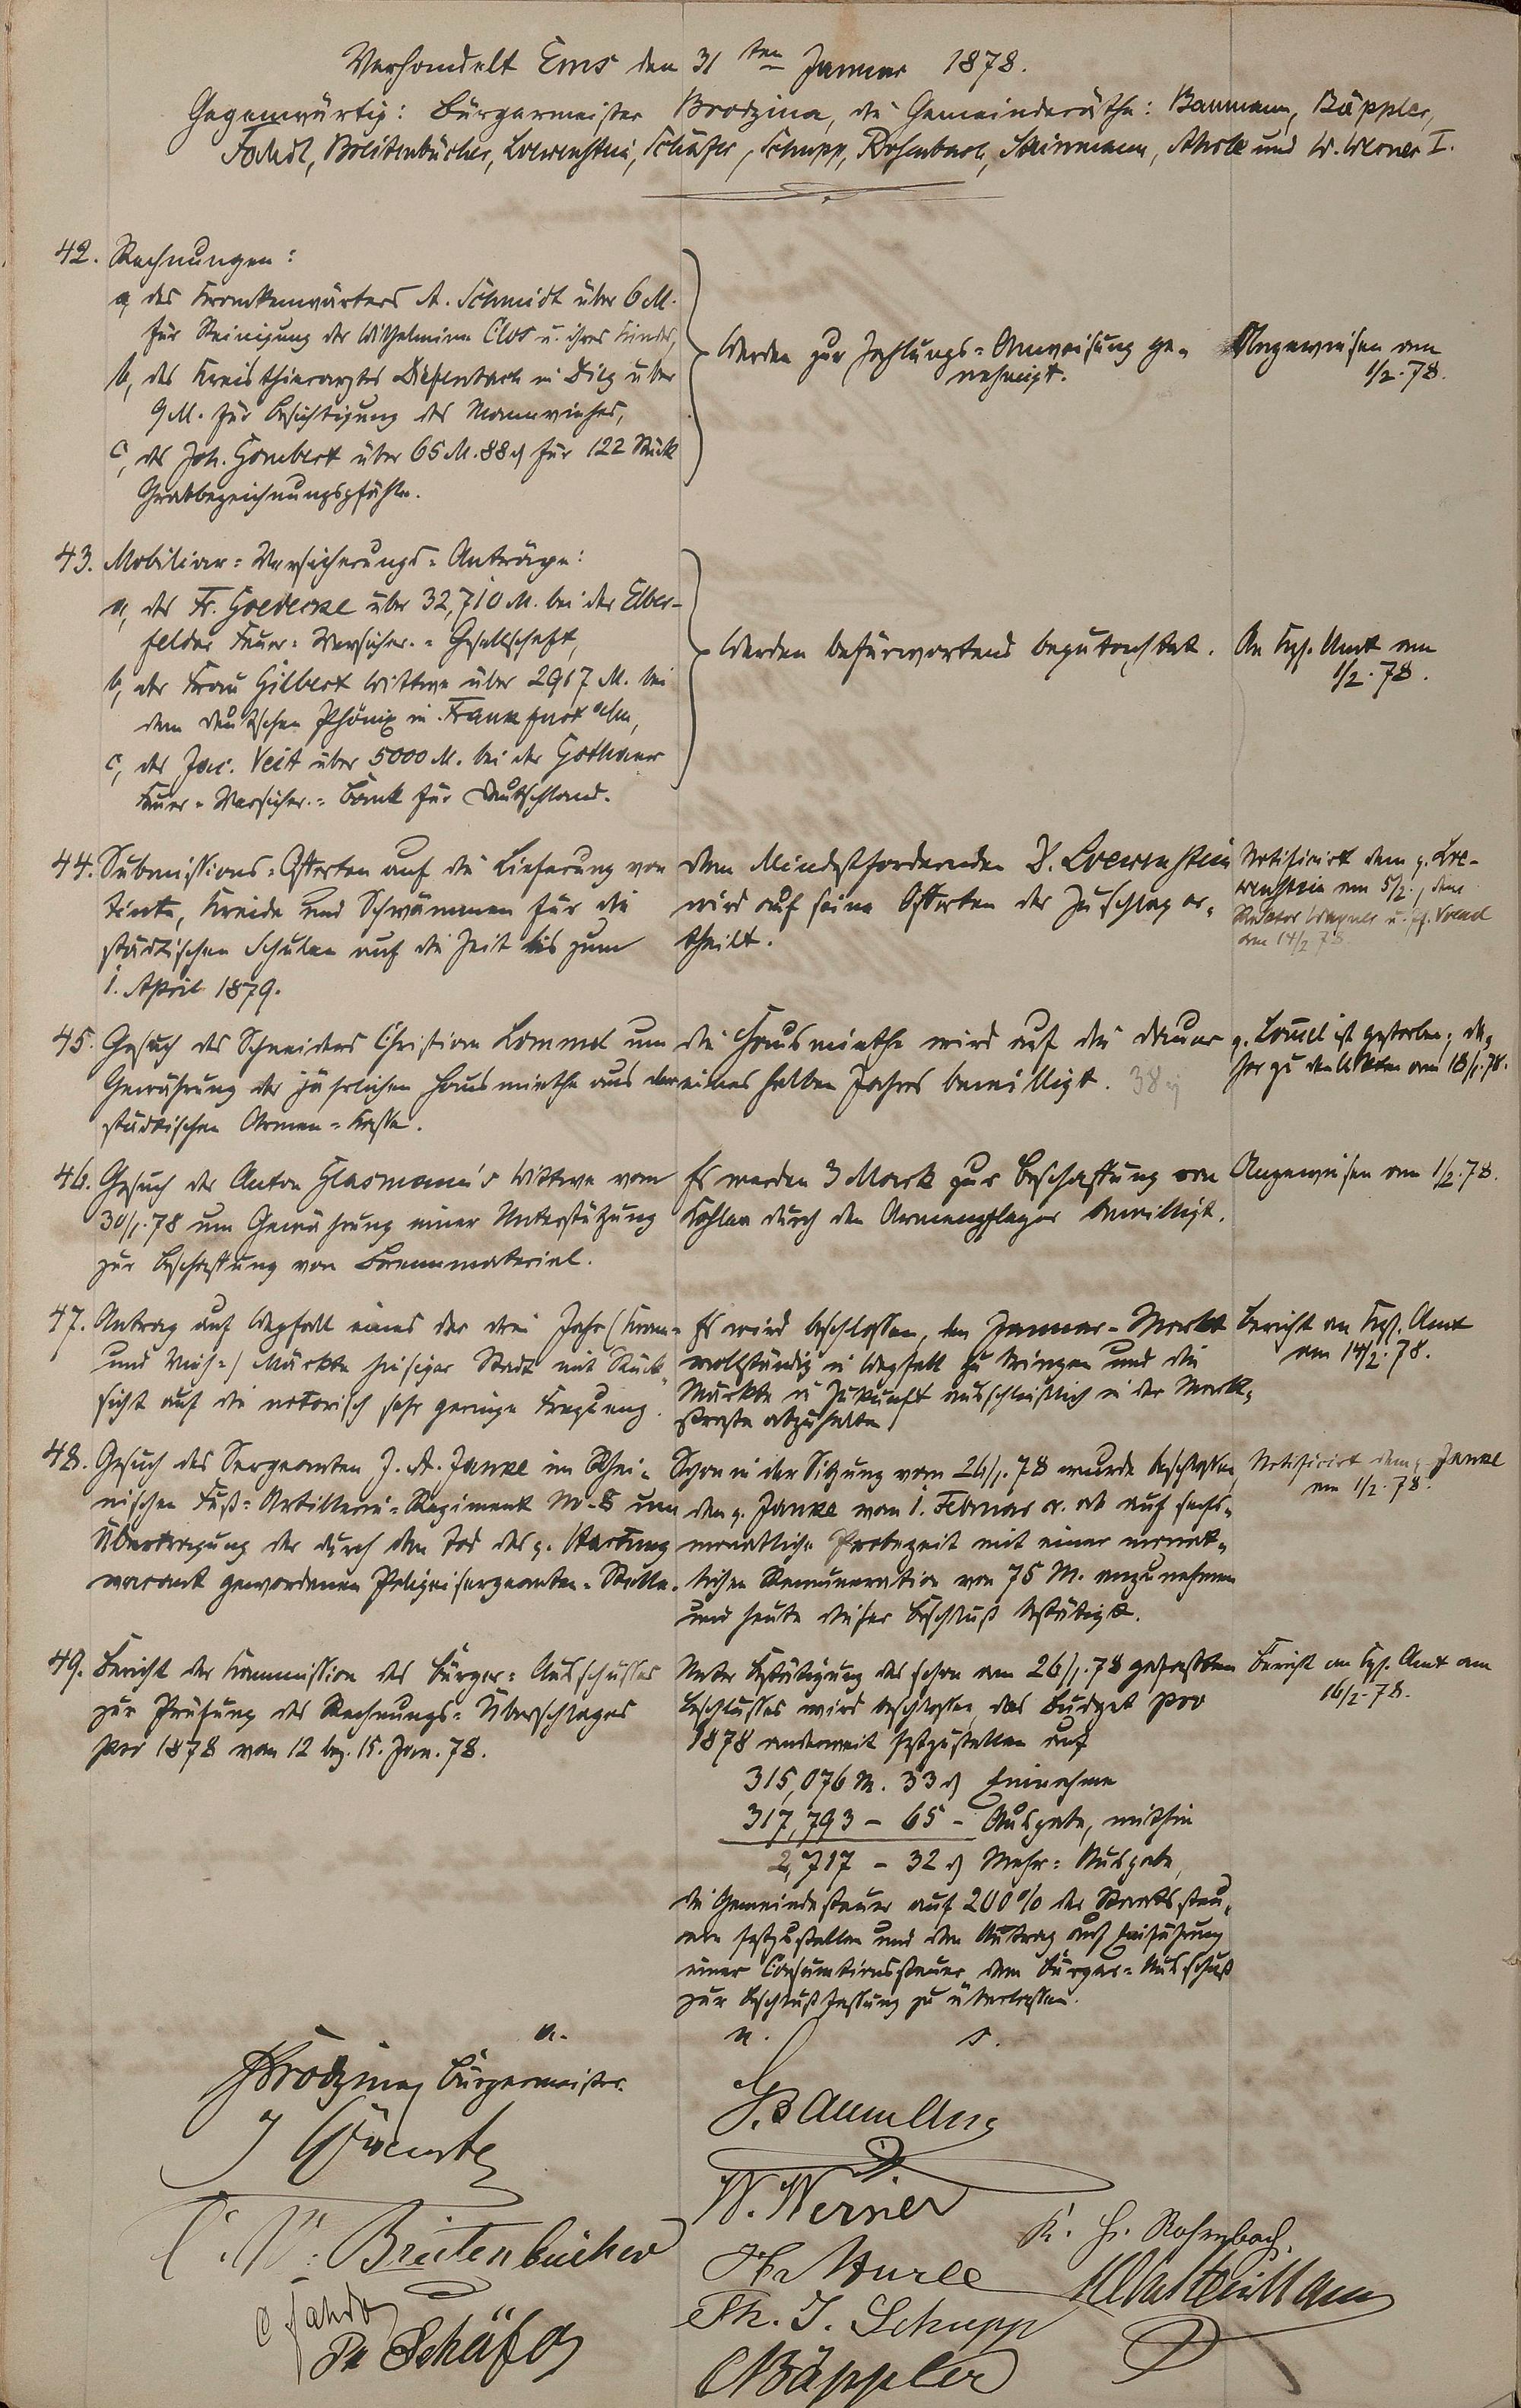 Verhandelt Ems den 31ten Januar 1878.
Gegenwärtig: Bürgermeister Brodzina, die Gemeinderäthe: Baumann, Bäppler,
Breitenbücher, Loewenstein, Schäfer, Schupp, Rosenbach, Steinmann, und W. Werner I.
42. Rechnungen:
a, des Krankenwärters A. Schmidt über 6 M.
für Reinigung der Wilhelmine Clos u. ihres Kindes,
b, des Kreisthierarztes Diefenbach in Diez über
9 M. für Besichtigung des
c, des Joh. Gombert über 65 M. 88 ₰ für 122 Stück
Grabbezeichnungspfähle.
Werden zur Zahlungs-Anweisung ge-
nehmigt.
Angewiesen am
1/2. 78.
43. Mobiliar-Versicherungs-Anträge:
a, des Fr. Goedecke über 32,710 M. bei der Elber-
felder Feuer-Versicher.-Gesellschaft,
b, der Frau Gilbert Wittwe über 2967 M. bei
dem deutschen Phönix in Frankfurt a/M.,
c, des Jac. Veit über 5000 M. bei der Gothaer
Feuer-Versicher.-Bank für Deutschland.
Werden befürwortend begutachtet.
An Kgl. Amt am
1/2. 78.
44. Submissions-Offerten auf die Lieferung von
Tinte, Kreide und Schwämmen für die
städtischen Schulen auf die Zeit bis zum
1. April 1879.
Dem Mindestfordernden J. Loewenstein
wird auf seine Offerten der Zuschlag er-
theilt.
Notificirt dem p. Loe-
wenstein am 5/2., dem
Rector Wagner u.
am 14/2 78.
45. Gesuch des Schneiders Christian Lommel um
Gewährung der jährlichen Hausmiethe aus der
städtischen Armen-Kasse.
Die Hausmiethe wird auf die Dauer
eines halben Jahres bewilligt.
p. Lommel ist gestorben; da-
her zu den Akten am 18/1. 78.
46. Gesuch der Anton Glasmann's Wittwe vom
30/1. 78 um Gewährung einer Unterstützung
zur Beschaffung von Brennmaterial.
Es werden 3 Mark zur Beschaffung von
Kohlen durch den Armenpfleger bewilligt.
Angewiesen am 1/2. 78.
47. Antrag auf Wegfall eines der drei Jahr (Kram-
und Vieh-) Märkte hiesiger Stadt mit Rück-
sicht auf die notorisch sehr geringe Frequenz.
Es wird beschlossen, den Januar-Markt
vollständig in Wegfall zu bringen und die
Märkte in Zukunft ausschließlich in der Markt-
straße abzuhalten.
Bericht an Kgl. Amt
am 14/2. 78.
48. Gesuch des Sergeanten J. A. Janke im Rhei-
nischen Fuß-Artillerie-Regiment No. 8 um
Übertragung der durch den Tod des p. Hartung
vacant gewordenen Polizeisergeanten-Stelle.
Schon in der Sitzung vom 26/1. 78 wurde beschlossen,
den p. Janke vom 1. Februar cr. ab auf sechs-
monatliche Probezeit mit einer monat-
lichen Remuneration von 75 M. anzunehmen
und heute dieser Beschluß bestätigt.
Notificirt dem p. Janke
am 1/2. 78.
49. Bericht der Kommission des Bürger-Ausschusses
zur Prüfung des Rechnungs-Überschlages
pro 1878 vom 12 bez. 15. Jan. 78.
Unter Bestätigung des schon am 26/1. 78 gefaßten
Beschlusses wird beschlossen, das Budget pro
1878 anderweit festzustellen auf
315,076 M. 33 ₰ Einnahme
317,793 - 65 - Ausgabe, mithin
2,717 - 32 ₰ Mehr-Ausgabe,
die Gemeindesteuer auf 200% der Staatssteu-
ern festzustellen und den Antrag auf Einführung
einer Consumtionssteuer dem Bürger-Ausschuß
zur Beschlußfassung zu überlassen.
a. u. s.
Brodzina Bürgermeister.
J. Baumann
W. Werner
Breitenbücher
K. H. Rosenbach
Steinmann
Ph. J. Schupp
Schäfer
Bäppler